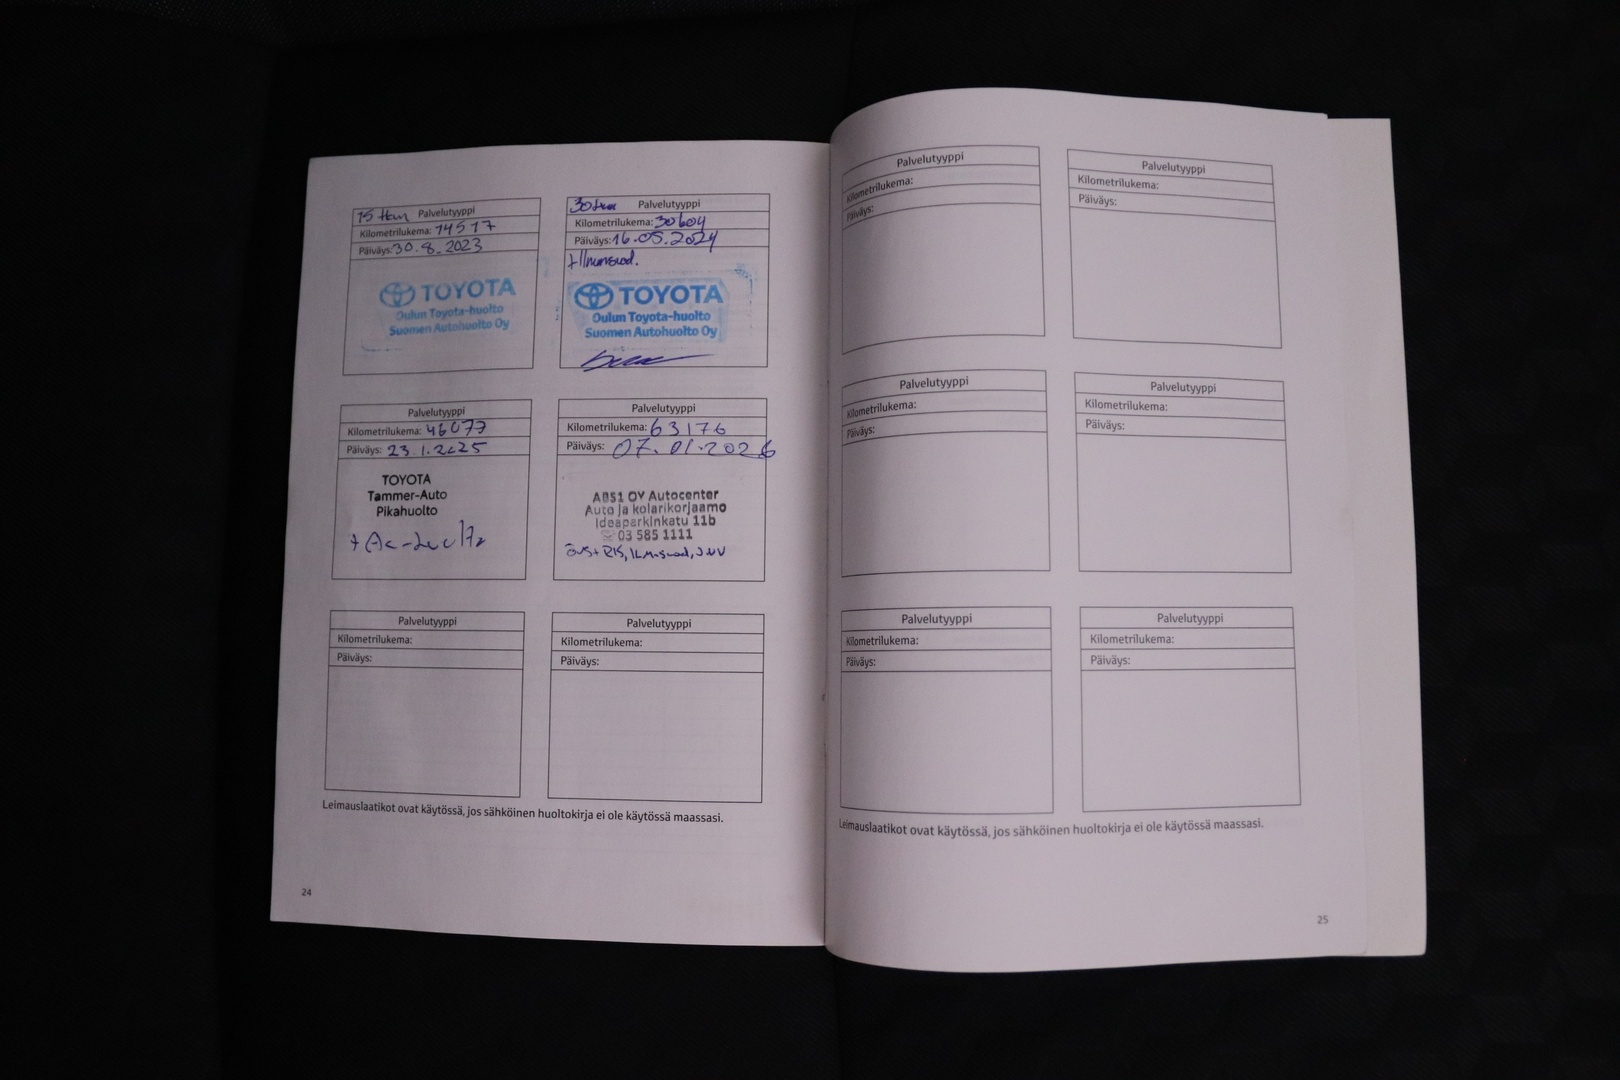 15 tkm Palvelutyyppi
Kilometrilukema: 14517
Päiväys: 30.8.2023
TOYOTA
Oulun Toyota-huolto
Suomen Autohuolto Oy
30 tkm Palvelutyyppi
Kilometrilukema: 30604
Päiväys: 16.05.2024
TOYOTA
Oulun Toyota-huolto
Suomen Autohuolto Oy
Palvelutyyppi
Kilometrilukema: 46077
Päiväys: 23.1.2025
TOYOTA
Tammer-Auto
Pikahuolto
+ Ac-huolto
Palvelutyyppi
Kilometrilukema: 63176
Päiväys: 07.01.2026
ABS1 OY Autocenter
Auto ja kolarikorjaamo
Ideaparkinkatu 11b
☏ 03 585 1111
Palvelutyyppi
Kilometrilukema:
Päiväys:
Palvelutyyppi
Kilometrilukema:
Päiväys:
Leimauslaatikot ovat käytössä, jos sähköinen huoltokirja ei ole käytössä maassasi.
24
Palvelutyyppi
Kilometrilukema:
Päiväys:
Palvelutyyppi
Kilometrilukema:
Päiväys:
Palvelutyyppi
Kilometrilukema:
Päiväys:
Palvelutyyppi
Kilometrilukema:
Päiväys:
Palvelutyyppi
Kilometrilukema:
Päiväys:
Palvelutyyppi
Kilometrilukema:
Päiväys:
Leimauslaatikot ovat käytössä, jos sähköinen huoltokirja ei ole käytössä maassasi.
25